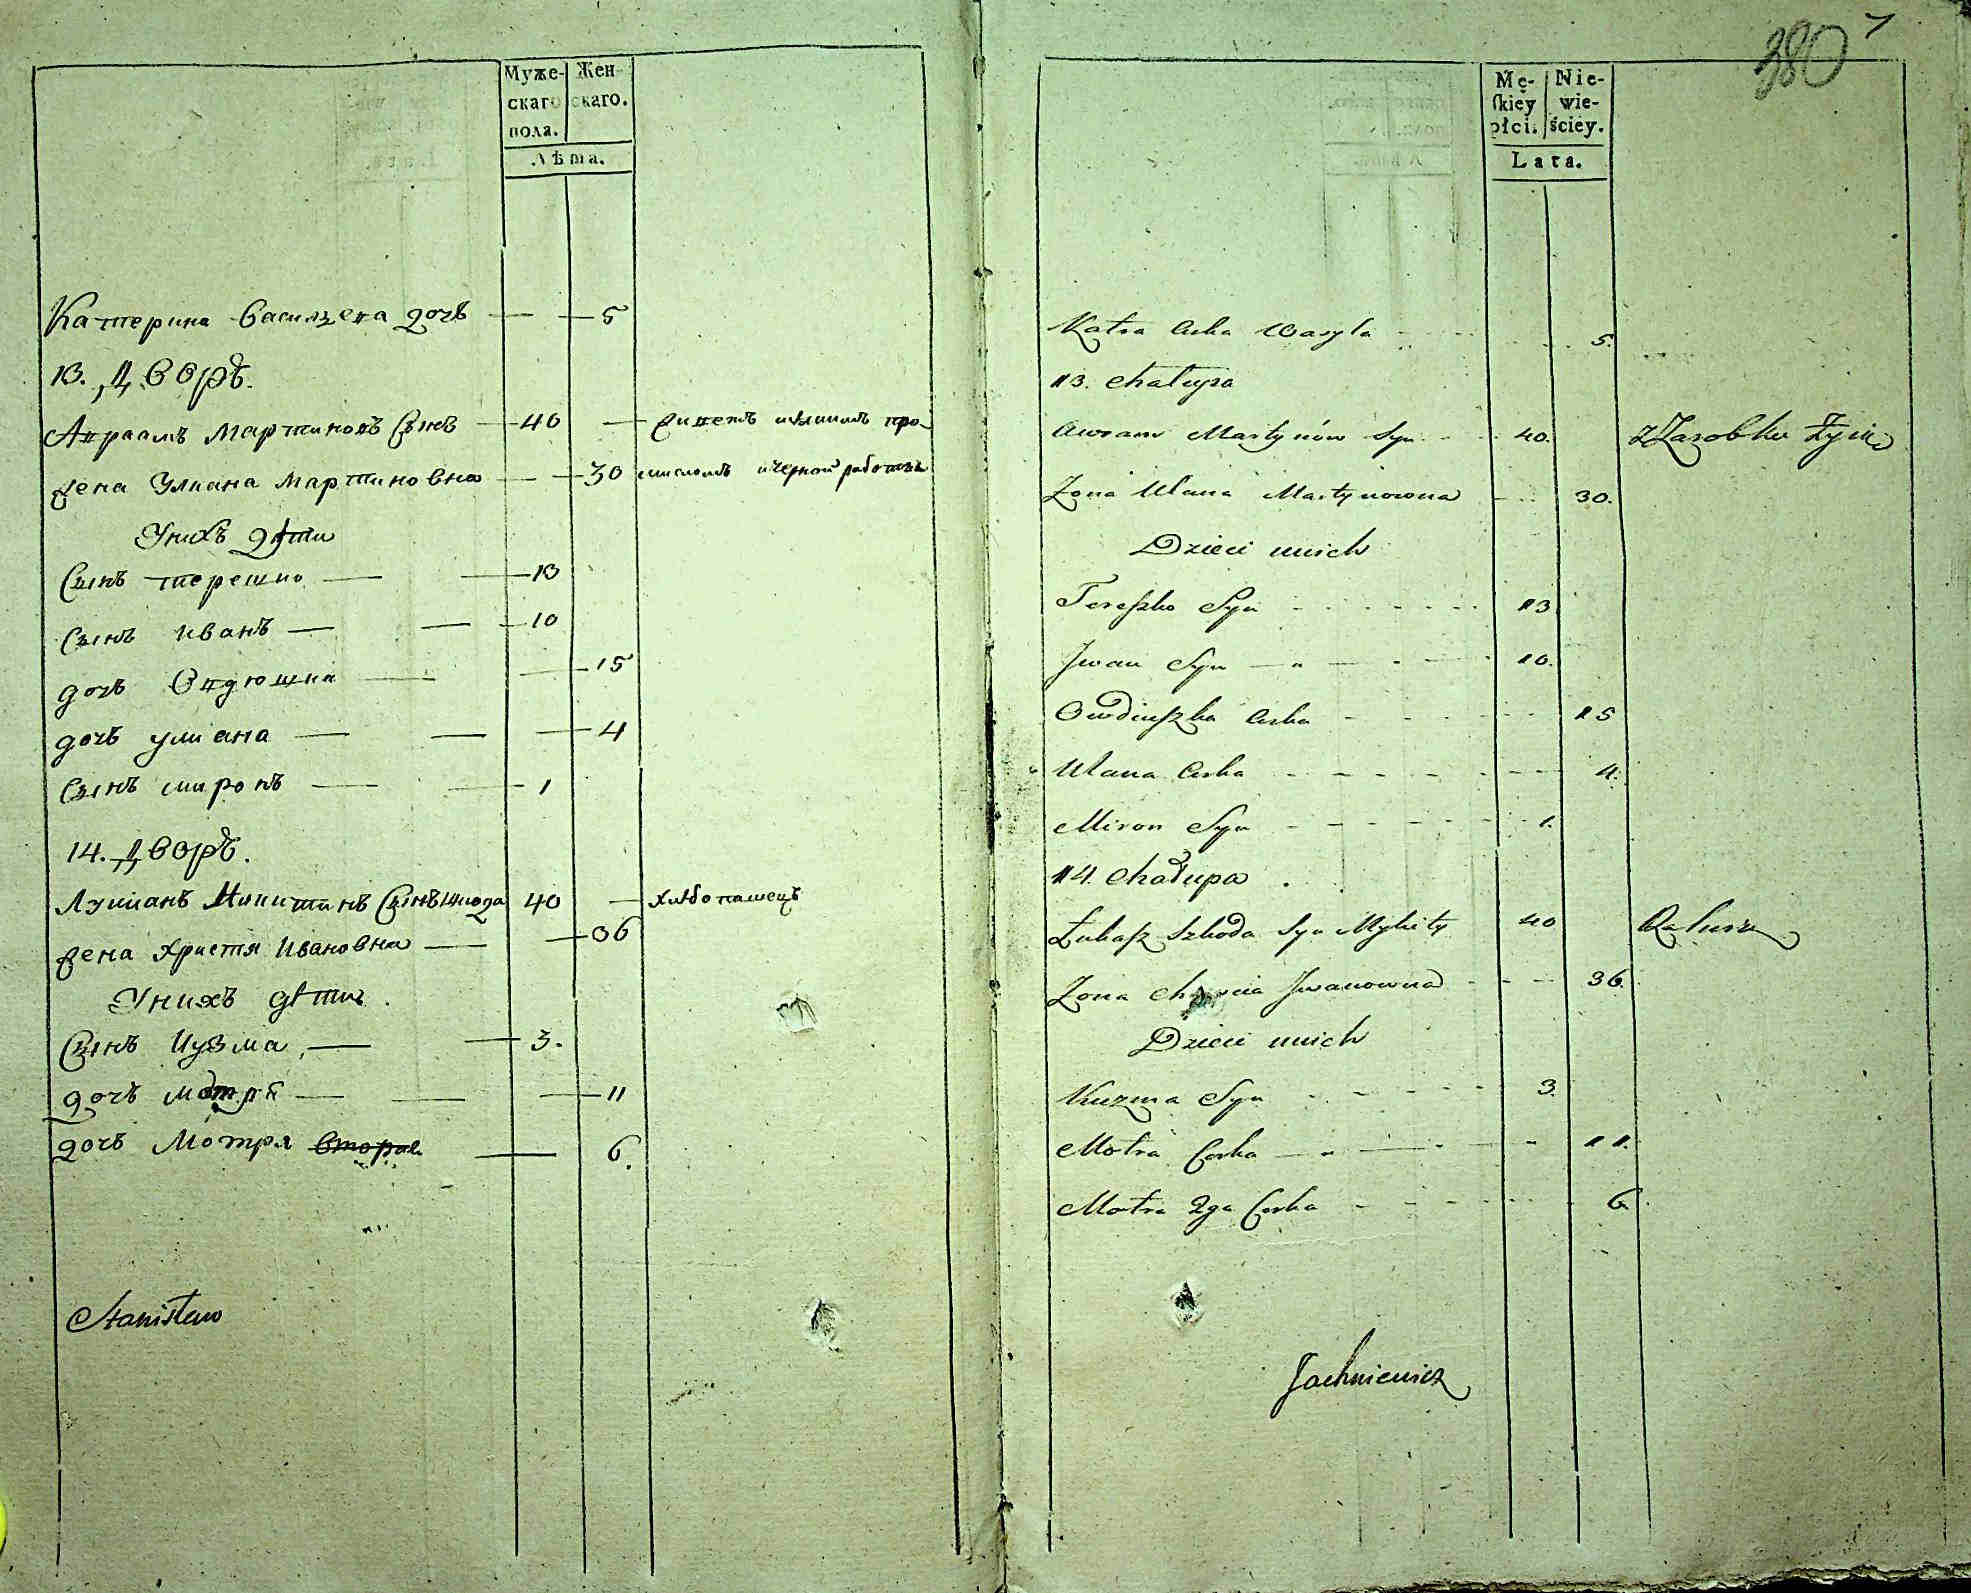 Муже- Жен-
скаго скаго.
пола.
Лѣта.
Катерина Василева дочь 5
13. Дворъ.
Авраамъ Мартиновъ Сынъ 40 Живетъ мѣлкимъ про-
жена Улиана Мартиновна 30 мысломъ и черной работы
У нихъ дѣти
Сынъ терешко 13
Сынъ Иванъ 10
дочь Овдюшка 15
дочь улиана 4
Сынъ миронъ 1
14. Дворъ.
Лукианъ Никитинъ Сынъ Шкода 40 хлѣбопашецъ
жена Христя Ивановна 36
У нихъ дѣти.
Сынъ Кузма 3.
дочь мотря 11
дочь Мотря вторая 6.
Stanisław
380
Mę- Nie-
skiey wie-
płci. ściey.
Lata.
Katra Curka Wasyla 5.
13. Chałupa
Awram Martynów Syn 40. z Zarobku Żyie
Żona Ulana Martynowna 30.
Dzieci u nich
Tereszko Syn 13
Jwan Syn 10.
Owdiuszka Curka 15
Ulana Curka 4.
Miron Syn 1.
14. Chałupa
Łukasz Szkoda Syn Mykity 40 Rolnik
Żona Jwanowna 36.
Dzieci u nich
Kuzma Syn 3.
Motra Corka 11.
Motra 2ga Corka 6
Jachniewicz